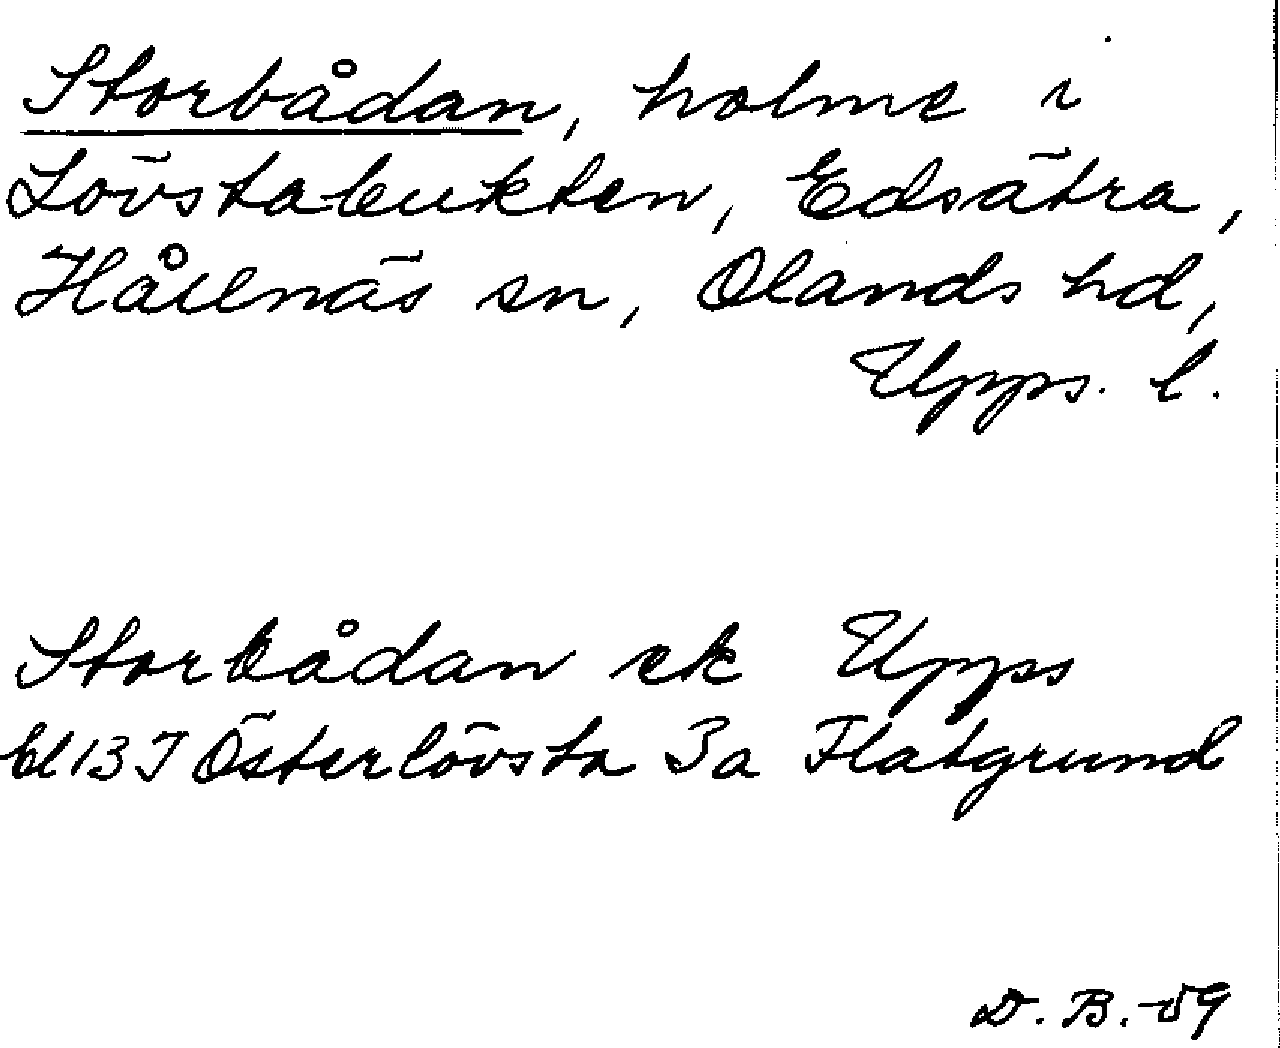 Storbådan, holme i
Lövstabukten, Edsätra,
Hållnäs sn, Olands hd,
Upps. l.
Storbådan ek Upps
bl 13 I Österlövsta 3a Flatgrund
D. B. -59